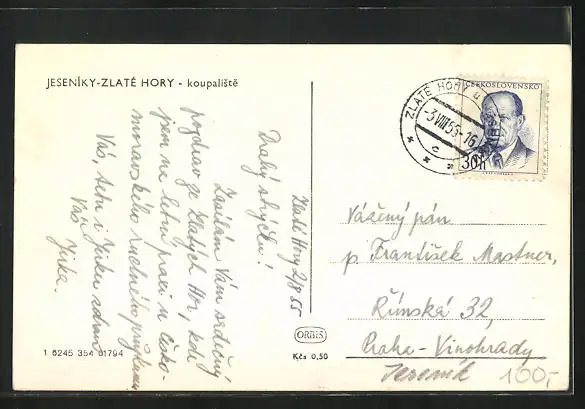 JESENÍKY-ZLATÉ HORY - koupaliště
Zlaté Hory 2/8 55
Drahý strýčku!
Zasílám Vám srdečný
pozdrav ze Zlatých Hor, kde
jsem na letní praxi u česko-
moravského rudného průzkumu
Váš, tetu i Jirku zdraví
Váš Jirka.
1 6245 354 01794
ORBIS
Kčs 0,50
ČESKOSLOVENSKO
30h
ZLATÉ HORY u
-3.VIII.55-16
Vážený pán
p František Mastner,
Římská 32,
Praha-Vinohrady
Jeseník 100,-